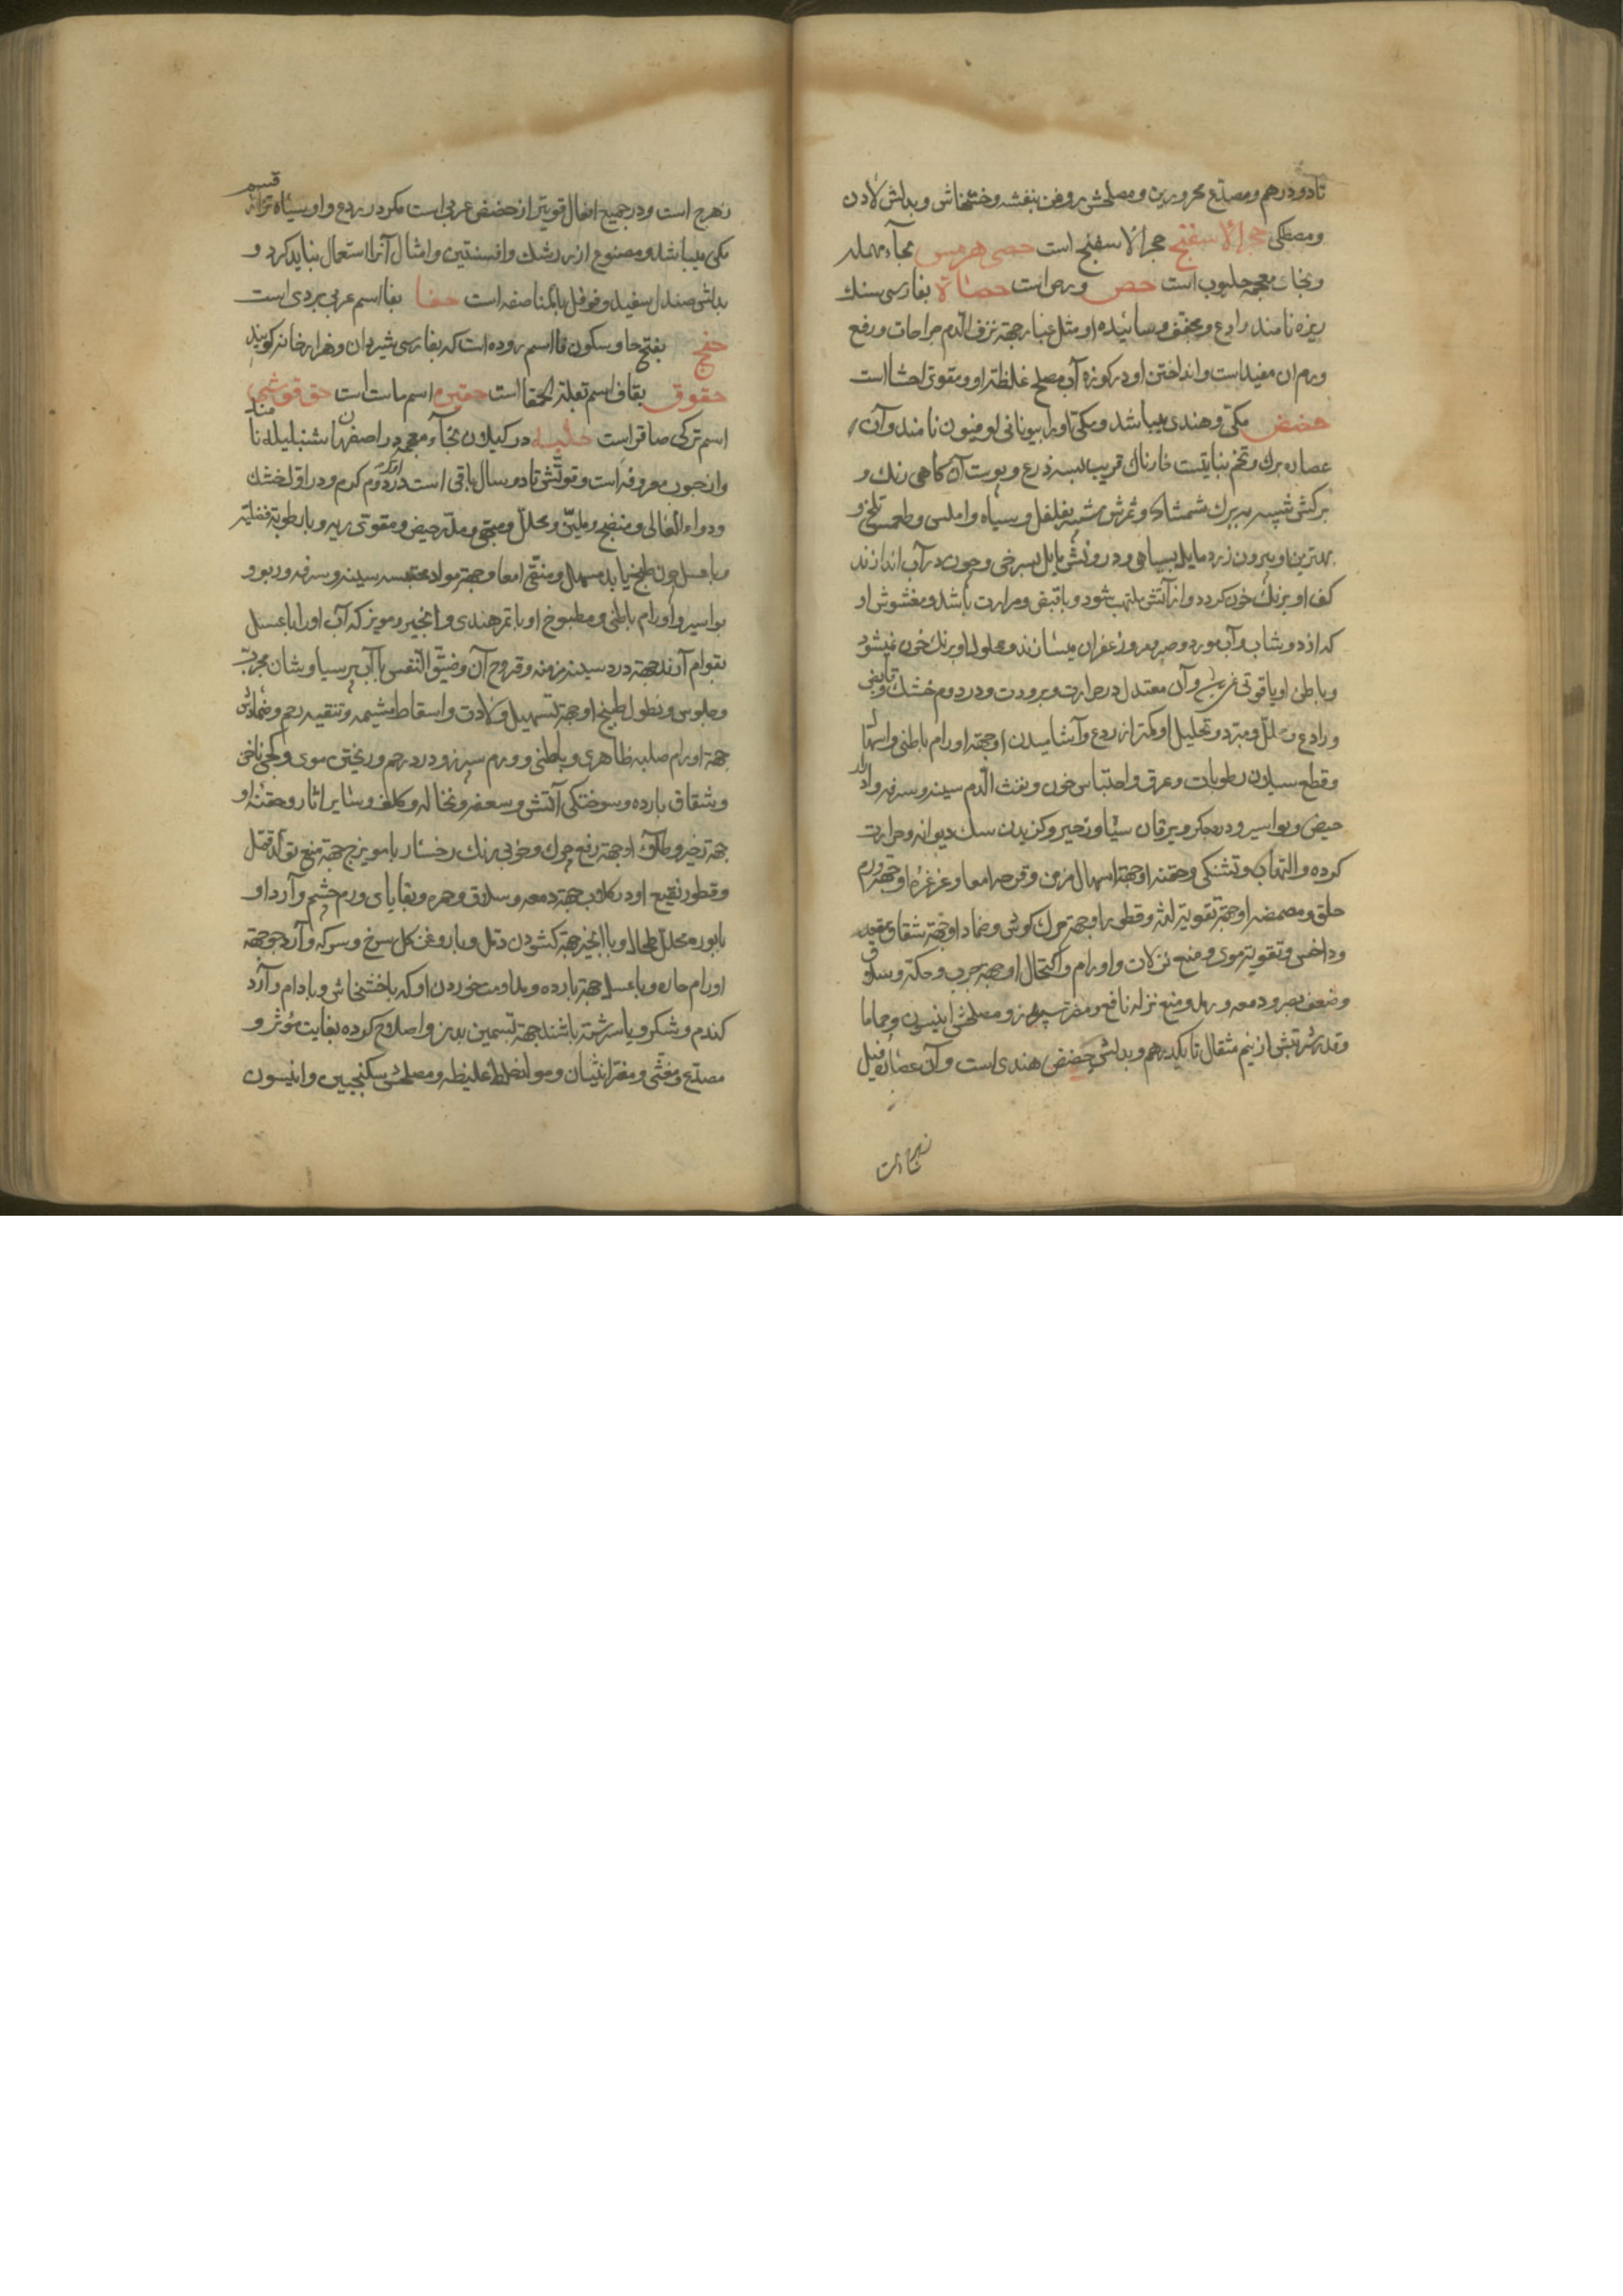 تا دو درهم و مصدّع محرورین و مصلحش روغن بنفشه و خشخاش و بدلش لادن
و مصطکی حجر الاسفنج حجر الاسفنج است حصی هرمس بحاء مهمله
و بخاء معجمه حلبوب است حص ورس است حصاة بفارسی سنک
ریزه نامند رادع و مجفف و سائیده او مثل غبار جهة نزف الدّم جراحات و رفع
ورم ان مفید است و انداختن او در کوزه آب مصلح غلظة او و مقوی احشا است
حضض مکّی و هندی میباشد و مکّی او را بیونانی لوفیون نامند و آن
عصاره برك و تخم نباتیست خارناك قریب بسه ذرع و پوست آن کاهی رنك و
برکش شبیه به برك شمشاد و ثمرش شبیه بفلفل و سیاه و املس و طعمش تلخ و
بهترین او بیرون زرد مایل بسیاهی و درونش مایل بسرخی و چون در آب اندازند
کف او برنك خون کردد و از آتش ملتهب شود و با قبض و مرارت باشد و مغشوش او
که از دوشاب و آب مورد و صبر و مر و زعفران میسازند و محلول او برنك خون نمیشود
و با طی او یاقوتی نیست و آن معتدل در حرارت و برودت و در دوم خشك و قابض
و رادع و محلل و مبرّد و تحلیل او کمتر از ردع و آشامیدن او جهة اورام باطنی و اسهال
و قطع سیلان رطوبات و عرق و احتباس خون و نفث الدّم سینه و سرفه و ادرار
حیض و بواسیر و درد جکر و یرقان سیاه و زحیر و کزیدن سك دیوانه و حرارت
کرده و التهاب و تشنکی و حقنه او جهة اسهال مزمن و قرحه امعا و غرغره او جهة ورم
حلق و مضمضه او جهة تقویة لثه و قطور او جهة چرك کوش و ضماد او جهة شقاق مقعد
و داخس و تقویة موی و منع نزلات و اورام و اکتحال او جهة جرب و حکّه و سلاق
و ضعف بصر و دمعه و رمد و منع نزله نافع و مضر سپرز و مصلحش انیسون و حماما
و قدر شربتش از نیم مثقال تا یکدرهم و بدلش حضض هندی است و آن عصاره فیل
زهره است
زهرج است و در جمیع افعال قویتر از حضض عربی است مکر در ردع و او سیاه تر از قسم
مکی میباشد و مصنوع از زرشك و افسنتین و امثال آنرا استعمال نباید کرد و
بدلش صندل سفید و فوفل بالمناصفه است حفا بفا اسم عربی بردی است
حفج بفتح حا و سکون فا اسم روده است که بفارسی شیردان و هزارخانه کویند
حقوق بقاف اسم بقلة الحمقا است حقین اسم ماست است حق قوشی
اسم ترکی صاقر است حلبه در کیلان بخاء معجمه در اصفهان شنبلیله نامند
و از حبوب معروفه است و قوّتش تا دو سال باقی است در آخر دوّم کرم و در اوّل خشك
و دواء الغالی و منضج و ملیّن و محلّل و مبهّی و مدرّ حیض و مقوّی ریه و با رطوبة فضلیّه
و با عسل چون طبخ یابد مسهل و منقّی امعا و جهة مواد محتبسه سینه و سرفه و ربو و
بواسیر و اورام باطنی و مطبوخ او با تمر هندی و انجیر و مویز که آب او را با عسل
بقوام آرند جهة درد سینه مزمنه و قروح آن و ضیق النّفس با آب پرسیاوشان مجرّبست
و جلوس و نطول طبیخ او جهة تسهیل ولادت و اسقاط مشیمه و تنقیه رحم و ضمادش
جهة اورام صلبه ظاهری و باطنی و ورم سپرز و درد رحم و ریختن موی و کجی ناخن
و شقاق بارده و سوختکی آتش و سعفه و نخاله و کلف و سایر اثار و حقنه او
جهة زحیر و طلاء او جهة رفع چرك و خوبی رنك رخسار با مویزج جهة منع تولّد قمل
و قطور نقیع او در کلاب جهة دمعه و سلاق و حمره و بقایای ورم چشم و آرد او
با بوره محلّل طحال و با انجیر جهة کشودن دمّل و با روغن کل سرخ و سرکه و آرد جو جهة
اورام حاره و با عسل جهة بارده و مداومت خوردن او که با خشخاش و بادام و آرد
کندم و شکر و یا سرشته باشند جهة تسمین بدن و اصلاح کرده بغایت مؤثر و
مصدّع و مغثّی و مضرّ انثیان و مولّد خلط غلیظه و مصلحش سکنجبین و انیسون